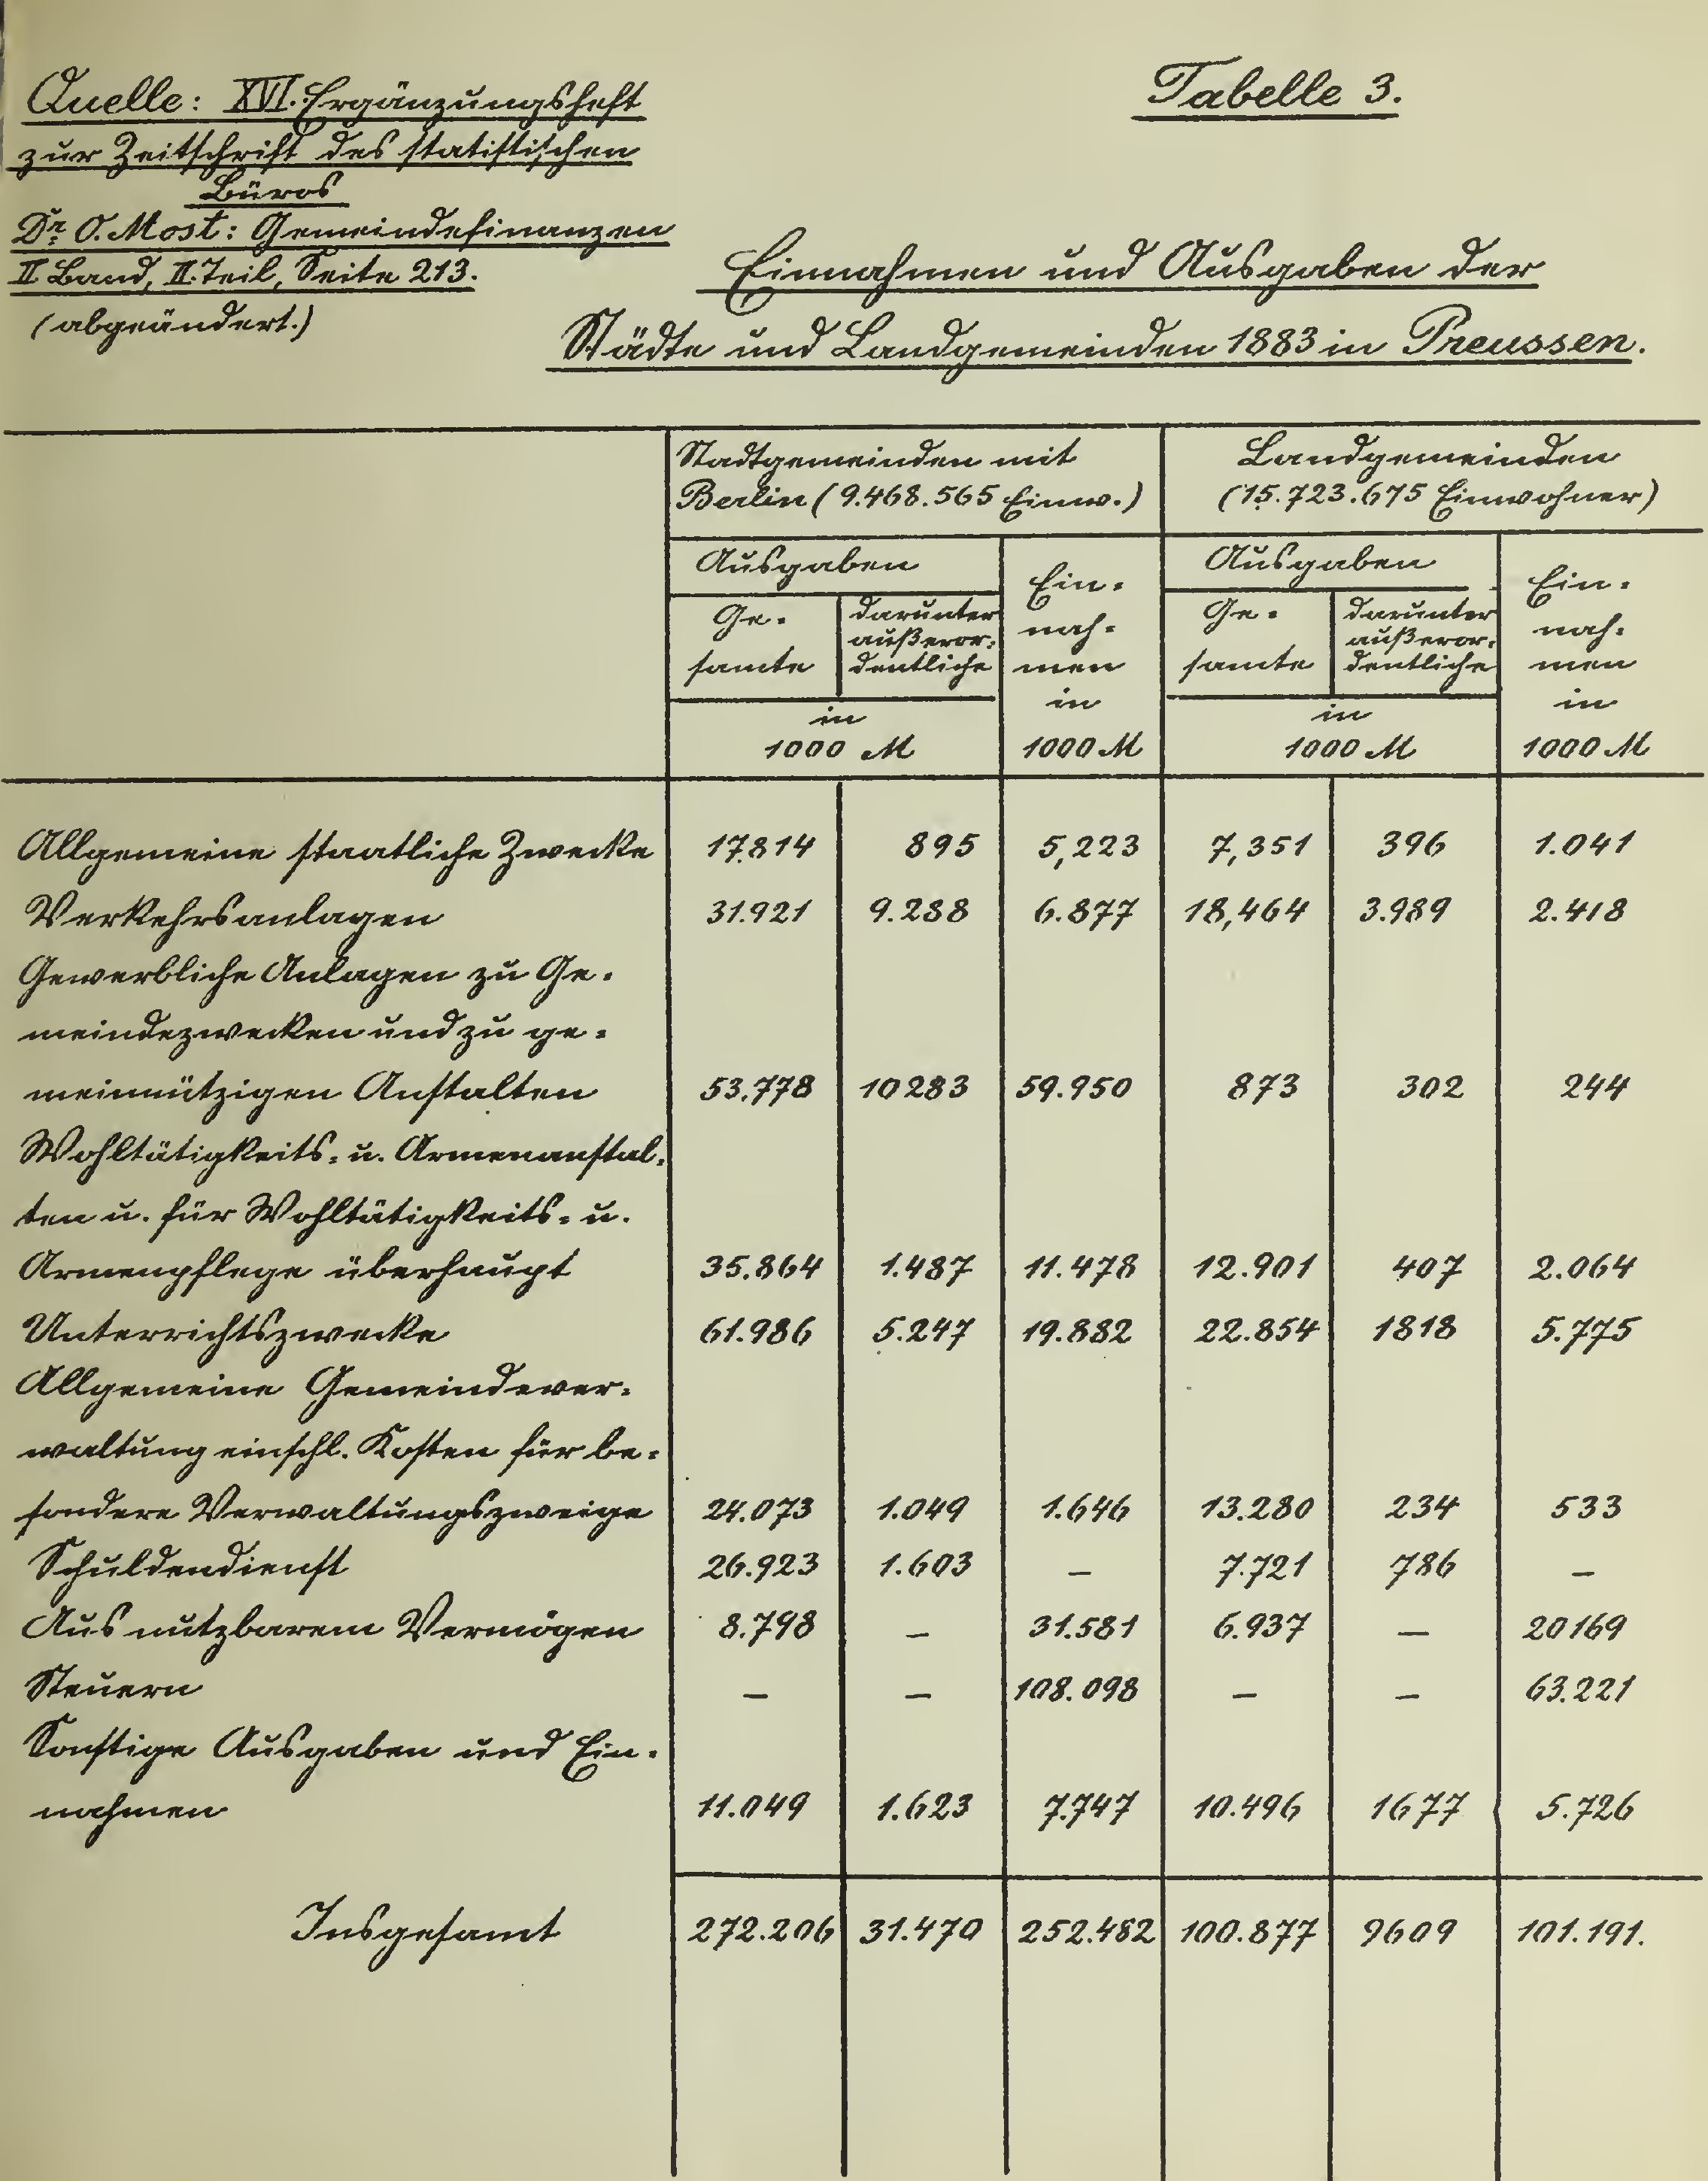 Quelle: XVI. Ergänzungsheft
zur Zeitschrift des statistischen
Büros
Dr. O. Most: Gemeindefinanzen
II Band, II. Teil, Seite 213.
(abgeändert.)
Tabelle 3.
Einnahmen und Ausgaben der
Städte und Landgemeinden 1883 in Preussen.
Stadtgemeinden mit Landgemeinden
Berlin (9.468.565 Einw.) (15.723.675 Einwohner)
Ausgaben Ein- Ausgaben Ein-
Ge- darunter nah- Ge- darunter nah-
außeror- außeror-
samte dentliche men samte dentliche men
in in in in
1000 M 1000 M 1000 M 1000 M
Allgemeine staatliche Zwecke 17.814 895 5,223 7,351 396 1.041
Verkehrsanlagen 31.921 9.288 6.877 18,464 3.989 2.418
Gewerbliche Anlagen zu Ge-
meindezwecken und zu ge-
meinnützigen Anstalten 53.778 10283 59.950 873 302 244
Wohltätigkeits- u. Armenanstal-
ten u. für Wohltätigkeits- u.
Armenpflege überhaupt 35.864 1.487 11.478 12.901 407 2.064
Unterrichtszwecke 61.986 5.247 19.882 22.854 1818 5.775
Allgemeine Gemeindever-
waltung einschl. Kosten für be-
sondere Verwaltungszweige 24.073 1.049 1.646 13.280 234 533
Schuldendienst 26.923 1.603 – 7.721 786 –
Aus nutzbarem Vermögen 8.798 – 31.581 6.937 – 20169
Steuern – – 108.098 – – 63.221
Sonstige Ausgaben und Ein-
nahmen 11.049 1.623 7.747 10.496 1677 5.726
Insgesamt 272.206 31.470 252.482 100.877 9609 101.191.